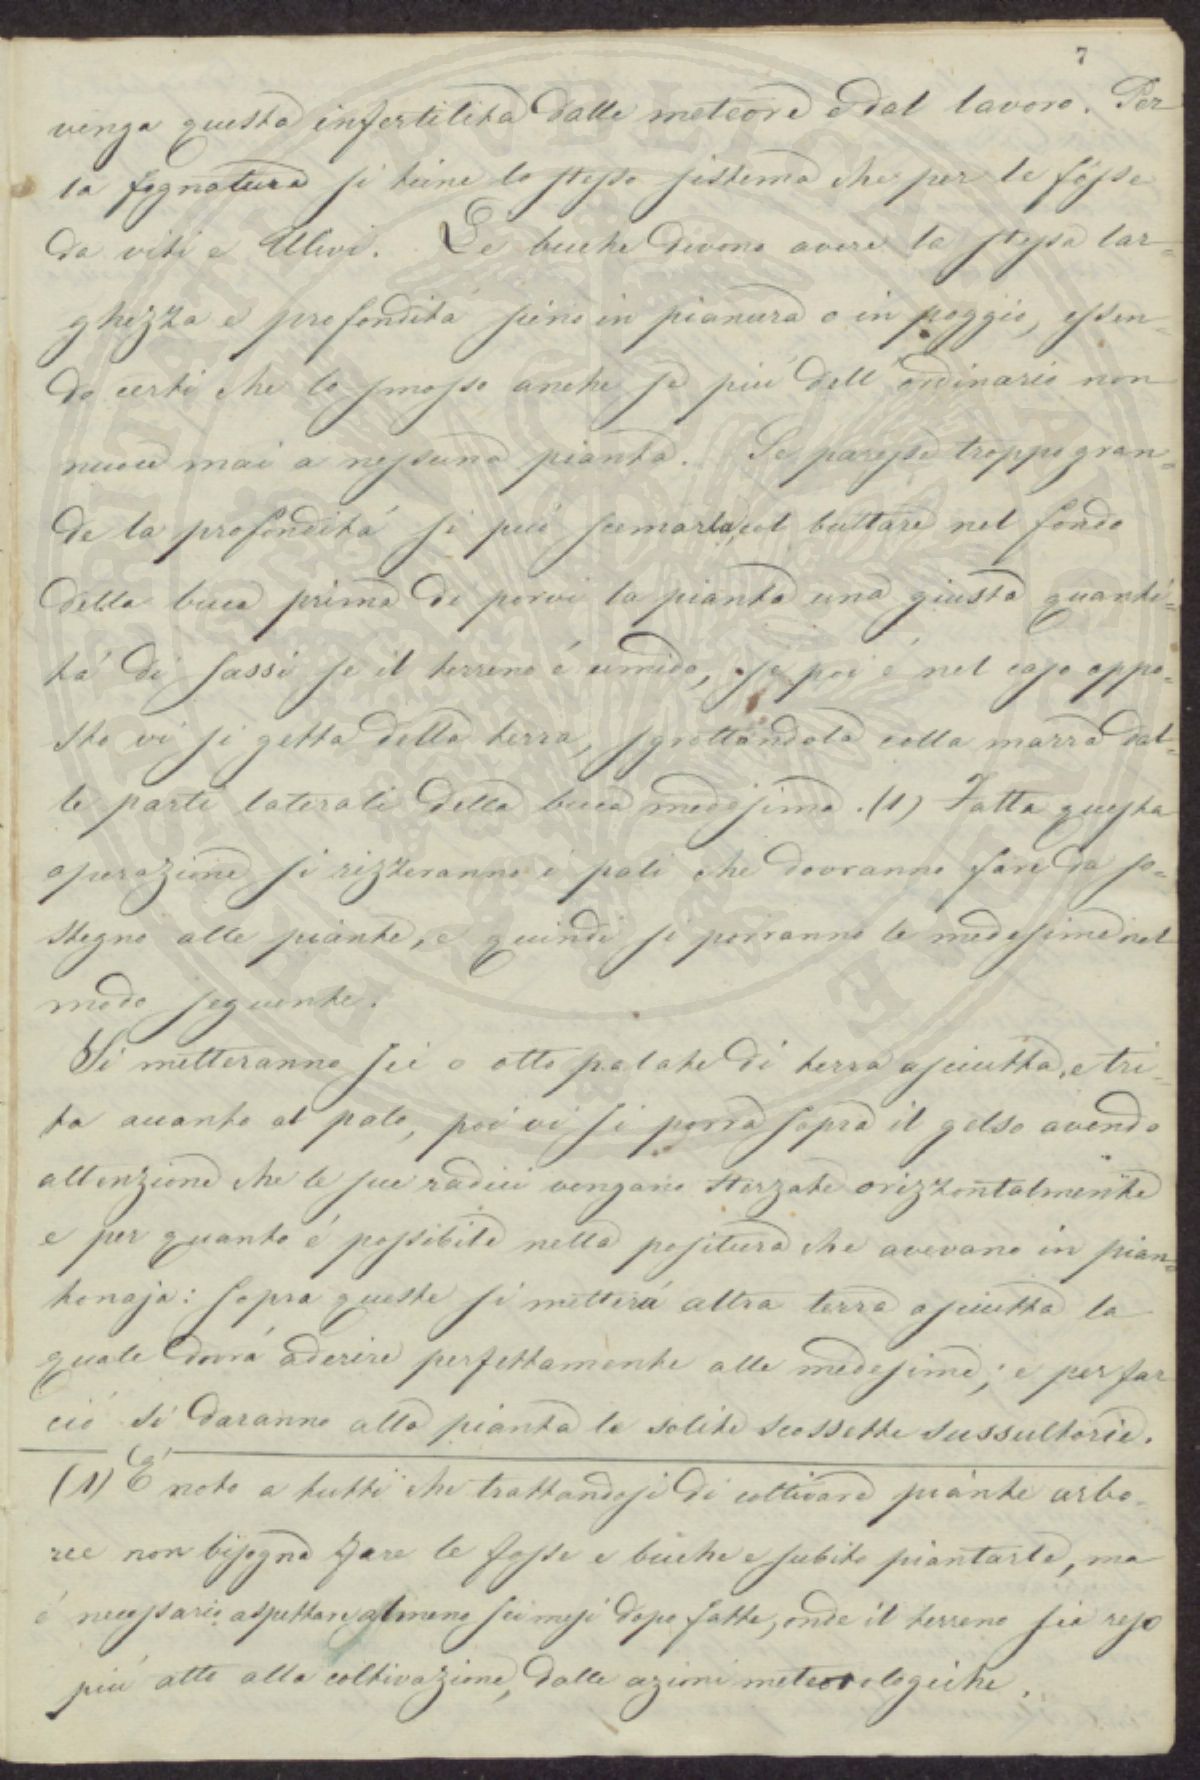 7
venga questa infertilità dalle meteore e dal lavoro. Per
la fognatura si tiene lo stesso sistema che per le fosse
da viti e Ulivi. Le buche devono avere la stessa lar=
ghezza e profondità sieno in pianura o in poggio, essen=
do certi che lo smosso anche se più dell'ordinario non
nuoce mai a nessuna pianta. Se paresse troppo gran=
de la profondità si può scemarla, col buttare nel fondo
della buca prima di porvi la pianta una giusta quanti=
tá di sassi se il terreno é umido, se poi é nel caso oppo=
sto vi si getta della terra, sgrottandola colla marra dal=
le parti laterali della buca medesima. (1) Fatta questa
operazione si rizzeranno i pali che dovranno fare da so=
stegno alle piante, e quindi si porranno le medesime nel
modo seguente.
Si metteranno sei o otto palate di terra asciutta, e tri=
ta accanto al palo, poi vi si porrà sopra il gelso avendo
attenzione che le sue radici vengano sterzate orizzontalmente
e per quanto é possibile nella positura che avevano in pian=
tonaja: sopra queste si metterá altra terra asciutta la
quale dovrá aderire perfettamente alle medesime; e per far
ció si daranno alla pianta le solite scossette sussultorie.
(1) É noto a tutti che trattandosi di coltivare piante arbo=
ree non bisogna fare le fosse e buche e subito piantarle, ma
é necessario aspettare almeno sei mesi dopo fatte, onde il terreno sia reso
piú atto alla coltivazione, dalle azioni meteorologiche.